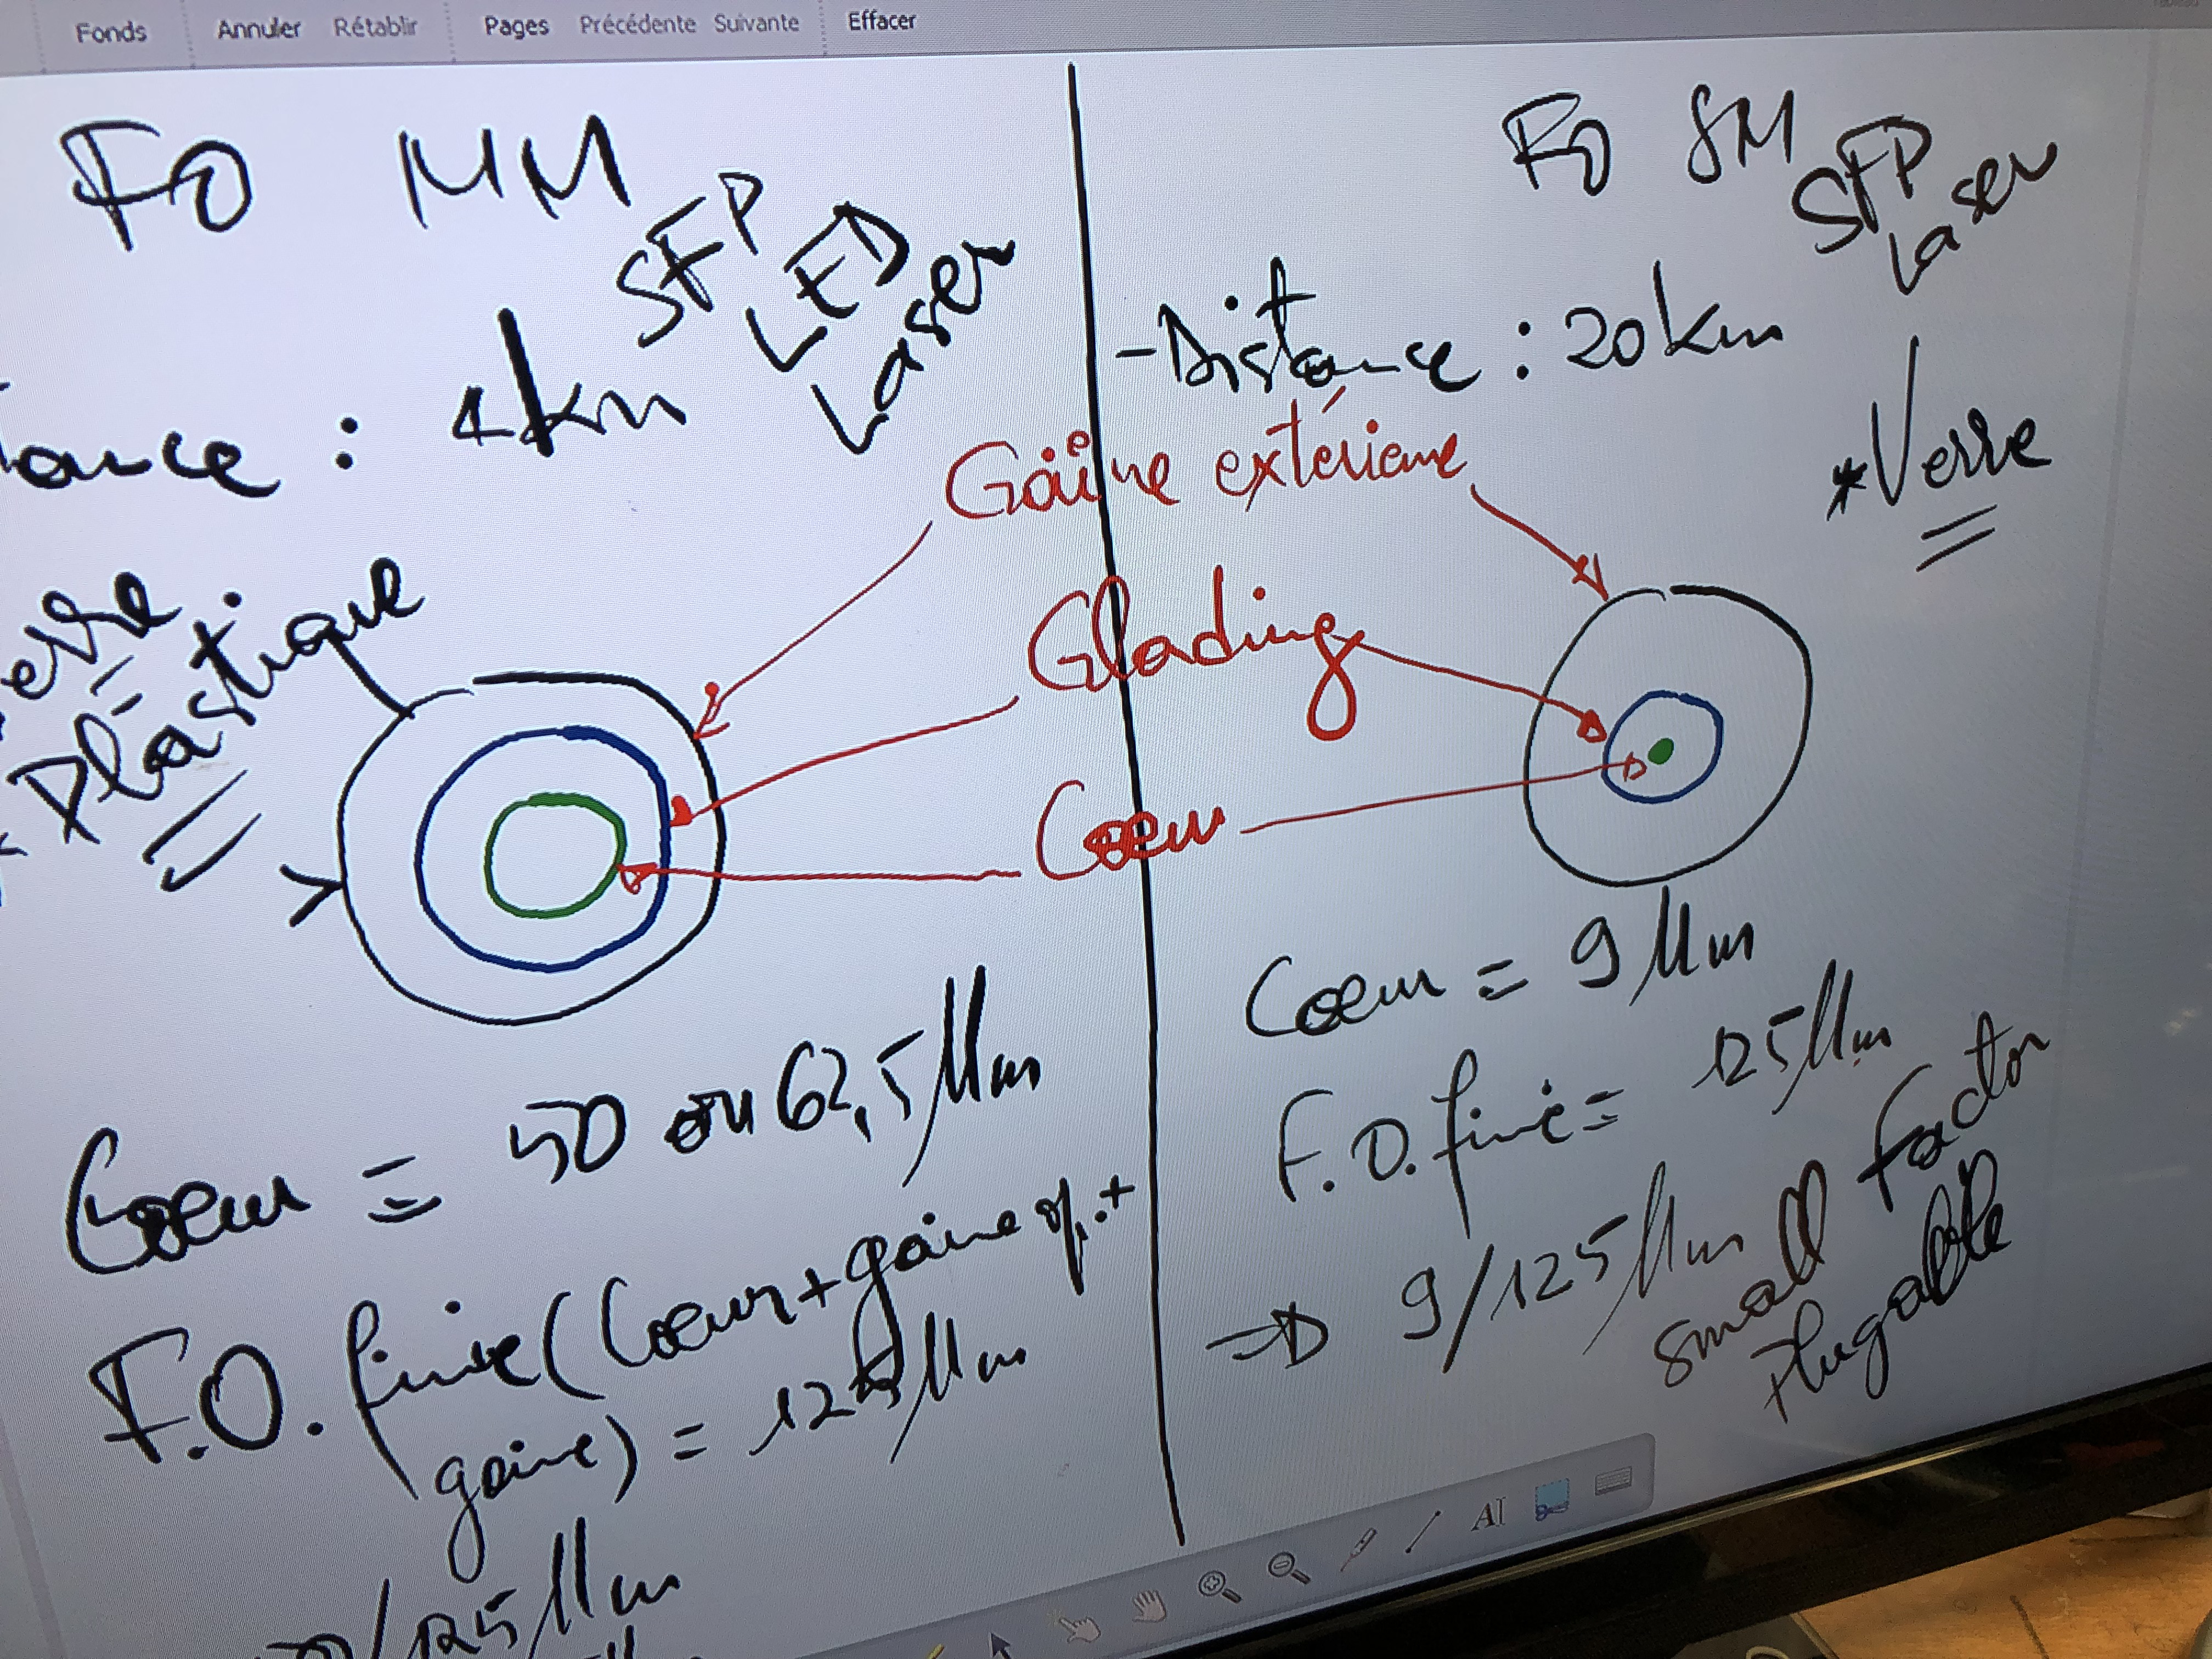 Fonds Annuler Rétablir Pages Précédente Suivante Effacer
FO MM
SFP
LED
Laser
tance : 4km
erre
* Plastique
FO SM
SFP
Laser
-Distance : 20km
*Verre
Gaîne extérieure
Glading
Coeur
Coeur = 50 ou 62,5 µm
F.O. finie (Coeur + gaine op. +
gaine) = 125 µm
/125 µm
Coeur = 9 µm
F.O. finie = 125 µm
=> 9/125 µm
Small Factor
Plugable
AI